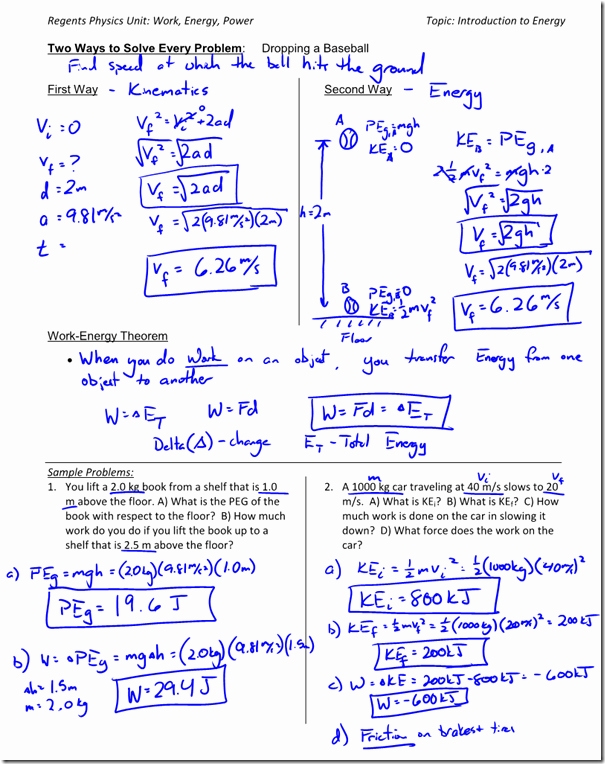 Regents Physics Unit: Work, Energy, Power
Topic: Introduction to Energy
Two Ways to Solve Every Problem: Dropping a Baseball
Find speed at which the ball hits the ground
First Way - Kinematics
Vi = 0
Vf = ?
d = 2m
a = 9.81 m/s²
t =
Vf² = Vi² + 2ad
0
√Vf² = √2ad
Vf = √2ad
Vf = √2(9.81m/s²)(2m)
Vf = 6.26 m/s
Second Way - Energy
A
PEg,A = mgh
KEA = 0
h = 2m
B
PEg,B = 0
KEB = ½mvf²
Floor
KEB = PEg,A
2·½mvf² = mgh·2
√Vf² = √2gh
Vf = √2gh
Vf = √2(9.81m/s²)(2m)
Vf = 6.26 m/s
Work-Energy Theorem
• When you do Work on an object, you transfer Energy from one
object to another
W = ΔET W = Fd W = Fd = ΔET
Delta(Δ) - change ET - Total Energy
Sample Problems:
1. You lift a 2.0 kg book from a shelf that is 1.0
m above the floor. A) What is the PEG of the
book with respect to the floor? B) How much
work do you do if you lift the book up to a
shelf that is 2.5 m above the floor?
a) PEg = mgh = (2.0kg)(9.81m/s²)(1.0m)
PEg = 19.6 J
b) W = ΔPEg = mgΔh = (2.0kg)(9.81m/s²)(1.5m)
Δh = 1.5m
m = 2.0kg
W = 29.4 J
m Vi Vf
2. A 1000 kg car traveling at 40 m/s slows to 20
m/s. A) What is KEi? B) What is KEf? C) How
much work is done on the car in slowing it
down? D) What force does the work on the
car?
a) KEi = ½mvi² = ½(1000kg)(40m/s)²
KEi = 800 kJ
b) KEf = ½mvf² = ½(1000kg)(20m/s)² = 200kJ
KEf = 200kJ
c) W = ΔKE = 200kJ - 800kJ = -600kJ
W = -600kJ
d) Friction on brakes + tires